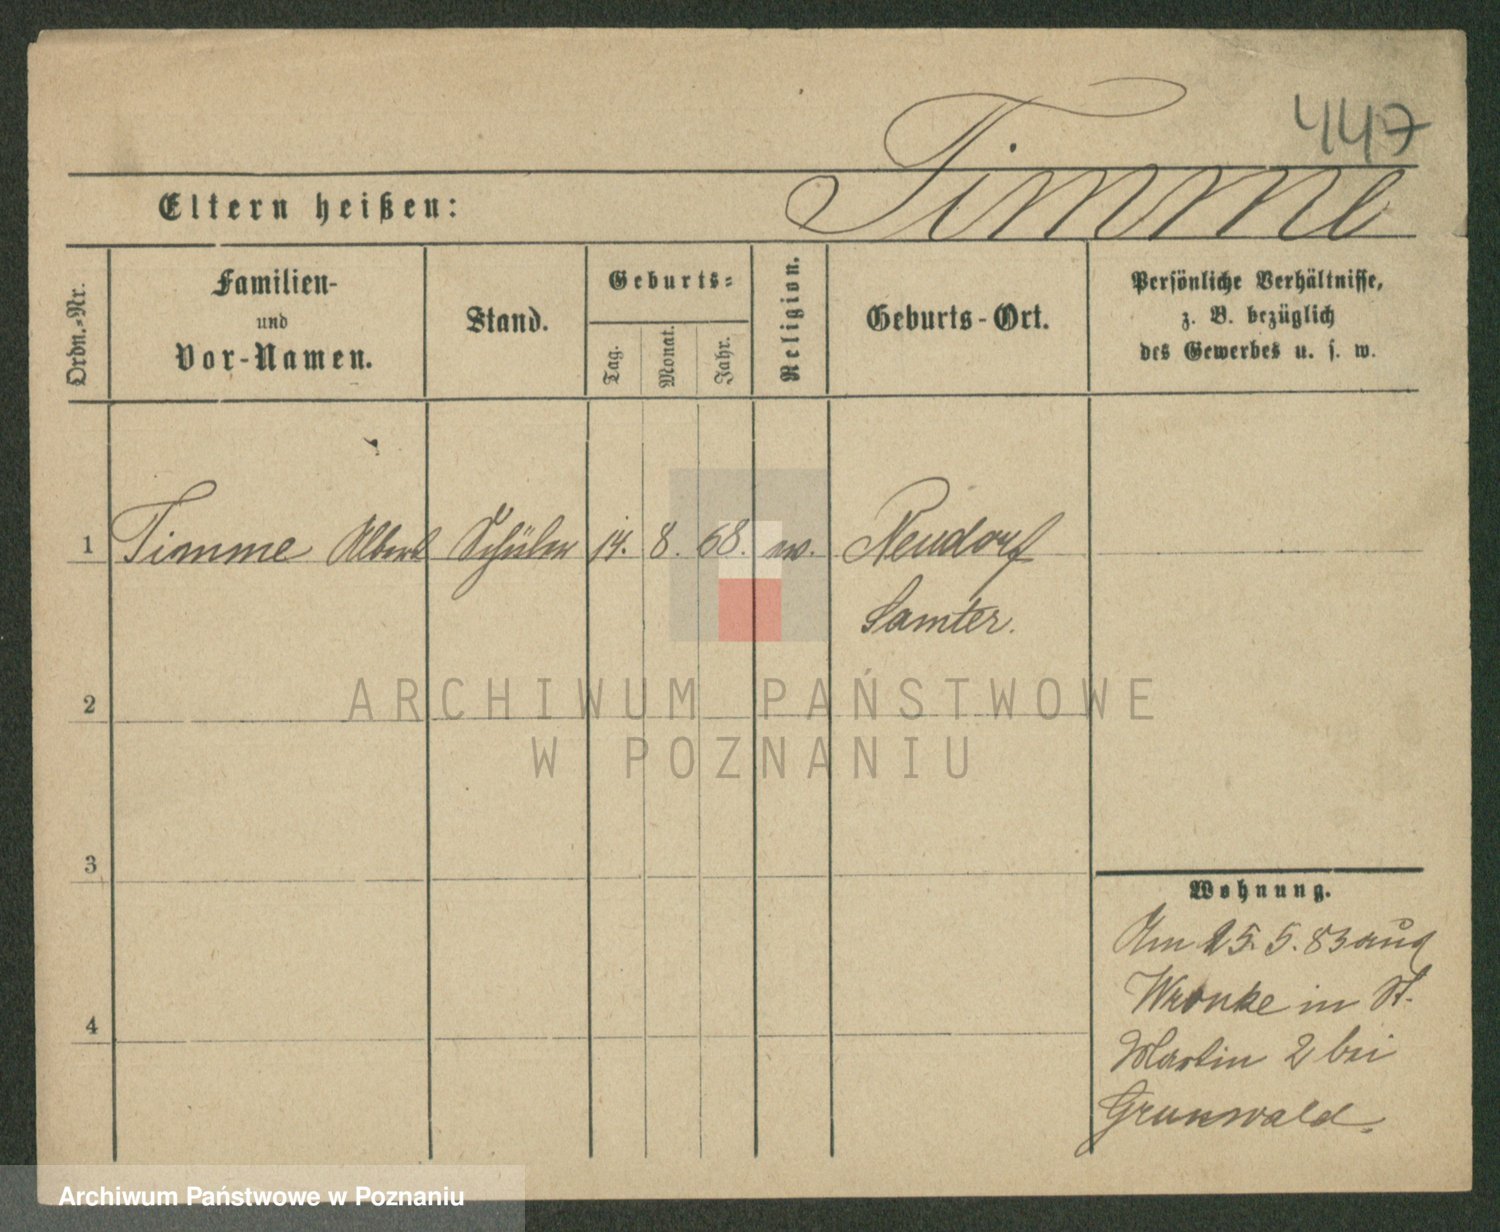 447
Timme
Eltern heißen:
Ordn.-Nr.
Familien-
und
Vor-Namen.
Stand.
Geburts-
Tag.
Monat.
Jahr.
Religion.
Geburts-Ort.
Persönliche Verhältnisse,
z. B. bezüglich
des Gewerbes u. s. w.
1 Timme Albert Schüler 14. 8. 68. ev. Neudorf
Samter.
ARCHIWUM PAŃSTWOWE
W POZNANIU
2
3
4
Wohnung.
Am 25. 5. 83 aus
Wronke in St.
Martin 2 bei
Grunwald.
Archiwum Państwowe w Poznaniu